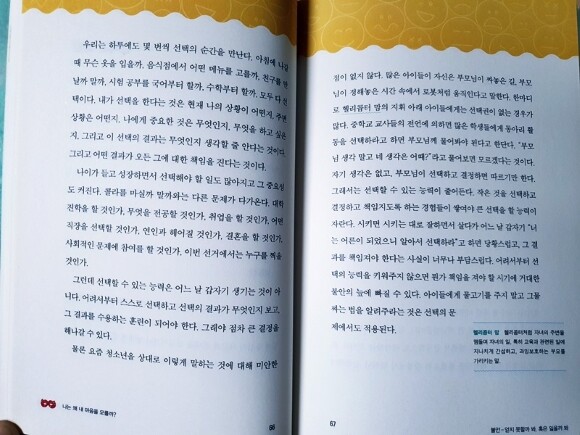 우리는 하루에도 몇 번씩 선택의 순간을 만난다. 아침에 나갈
때 무슨 옷을 입을까, 음식점에서 어떤 메뉴를 고를까, 친구를 만
날까 말까, 시험 공부를 국어부터 할까, 수학부터 할까, 모두 다 선
택이다. 내가 선택을 한다는 것은 현재 나의 상황이 어떤지, 주변
상황은 어떤지, 나에게 중요한 것은 무엇인지, 무엇을 하고 싶은
지, 그리고 이 선택의 결과는 무엇인지 생각할 줄 안다는 것이다.
그리고 어떤 결과가 오든 그에 대한 책임을 진다는 것이다.
나이가 들고 성장하면서 선택해야 할 일도 많아지고 그 중요성
도 커진다. 콜라를 마실까 말까와는 다른 문제가 다가온다. 대학
진학을 할 것인가, 무엇을 전공할 것인가, 취업을 할 것인가, 어떤
직장을 선택할 것인가, 연인과 헤어질 것인가, 결혼을 할 것인가,
사회적인 문제에 참여를 할 것인가, 이번 선거에서는 누구를 찍을
것인가.
그런데 선택할 수 있는 능력은 어느 날 갑자기 생기는 것이 아
니다. 어려서부터 스스로 선택하고 선택의 결과가 무엇인지 보고,
그 결과를 수용하는 훈련이 되어야 한다. 그래야 점차 큰 결정을
해나갈 수 있다.
물론 요즘 청소년을 상대로 이렇게 말하는 것에 대해 미안한
나는 왜 내 마음을 모를까?
66
점이 없지 않다. 많은 아이들이 자신은 부모님이 짜놓은 길, 부모
님이 정해놓은 시간 속에서 로봇처럼 움직인다고 말한다. 한마디
로 헬리콥터 맘의 지휘 아래 아이들에게는 선택권이 없는 경우가
많다. 중학교 교사들의 전언에 의하면 많은 학생들에게 동아리 활
동을 선택하라고 하면 부모님께 물어봐야 된다고 한단다. “부모
님 생각 말고 네 생각은 어때?”라고 물어보면 모르겠다는 것이다.
자기 생각은 없고, 부모님이 선택하고 결정하면 따르기만 한다.
그래서는 선택할 수 있는 능력이 줄어든다. 작은 것을 선택하고
결정하고 책임지도록 하는 경험들이 쌓여야 큰 선택을 할 능력이
자란다. 시키면 시키는 대로 잘하면서 살다가 어느 날 갑자기 “너
는 어른이 되었으니 알아서 선택하라”고 하면 당황스럽고, 그 결
과를 책임져야 한다는 사실이 너무나 부담스럽다. 어려서부터 선
택의 능력을 키워주지 않으면 뭔가 책임을 져야 할 시기에 거대한
불안의 늪에 빠질 수 있다. 아이들에게 물고기를 주지 말고 그물
짜는 법을 알려주라는 것은 선택의 문
제에서도 적용된다.
헬리콥터 맘 헬리콥터처럼 자녀의 주변을
맴돌며 자녀의 일, 특히 교육과 관련된 일에
지나치게 간섭하고, 과잉보호하는 부모를
가리키는 말.
67
불안－얻지 못할까 봐, 혹은 잃을까 봐